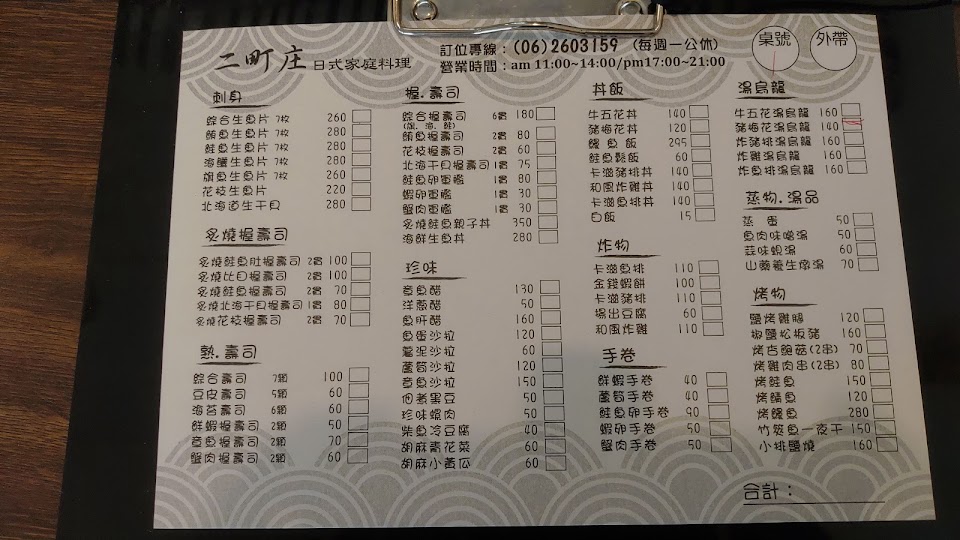 二町庄 日式家庭料理
訂位專線：(06)2603159 (每週一公休)
營業時間：am 11:00~14:00/pm17:00~21:00
桌號
外帶
刺身
綜合生魚片 7枚 260
鮪魚生魚片 7枚 280
鮭魚生魚片 7枚 280
海鱺生魚片 7枚 280
旗魚生魚片 7枚 260
花枝生魚片 220
北海道生干貝 280
炙燒握壽司
炙燒鮭魚肚握壽司 2貫 100
炙燒比目握壽司 2貫 100
炙燒鮭魚握壽司 2貫 70
炙燒北海干貝握壽司 1貫 80
炙燒花枝握壽司 2貫 70
熟.壽司
綜合壽司 7顆 100
豆皮壽司 5顆 60
海苔壽司 6顆 60
鮮蝦握壽司 2顆 50
章魚握壽司 2顆 70
蟹肉握壽司 2顆 60
握.壽司
綜合握壽司 6貫 180
(旗、海、鮭)
鮪魚握壽司 2貫 80
花枝握壽司 2貫 60
北海干貝握壽司 1貫 75
鮭魚卵軍艦 1貫 80
蝦卵軍艦 1貫 30
蟹肉軍艦 1貫 30
炙燒鮭魚親子丼 350
海鮮生魚丼 280
珍味
章魚醋 130
洋蔥醋 50
魚肝醋 160
魚蛋沙拉 120
薯泥沙拉 60
蘆筍沙拉 120
章魚沙拉 150
佃煮黑豆 50
珍味螺肉 50
柴魚冷豆腐 40
胡麻青花菜 50
胡麻小黃瓜 60
丼飯
牛五花丼 140
豬梅花丼 120
鰻魚飯 295
鮭魚鬆飯 60
卡滋豬排丼 140
和風炸雞丼 140
卡滋魚排丼 140
白飯 15
炸物
卡滋魚排 110
金錢蝦餅 100
卡滋豬排 110
揚出豆腐 60
和風炸雞 110
手卷
鮮蝦手卷 40
蘆筍手卷 40
鮭魚卵手卷 90
蝦卵手卷 50
蟹肉手卷 50
湯烏龍
牛五花湯烏龍 160
豬梅花湯烏龍 140
炸豬排湯烏龍 160
炸雞湯烏龍 160
炸魚排湯烏龍 160
蒸物.湯品
蒸蛋 50
魚肉味噌湯 50
蒜味蜆湯 60
山藥養生燉湯 70
烤物
鹽烤雞腿 120
椒鹽松板豬 160
烤杏鮑菇(2串) 70
烤雞肉串(2串) 80
烤鮭魚 150
烤鯖魚 120
烤鰻魚 280
竹筴魚一夜干 150
小排鹽燒 160
合計：